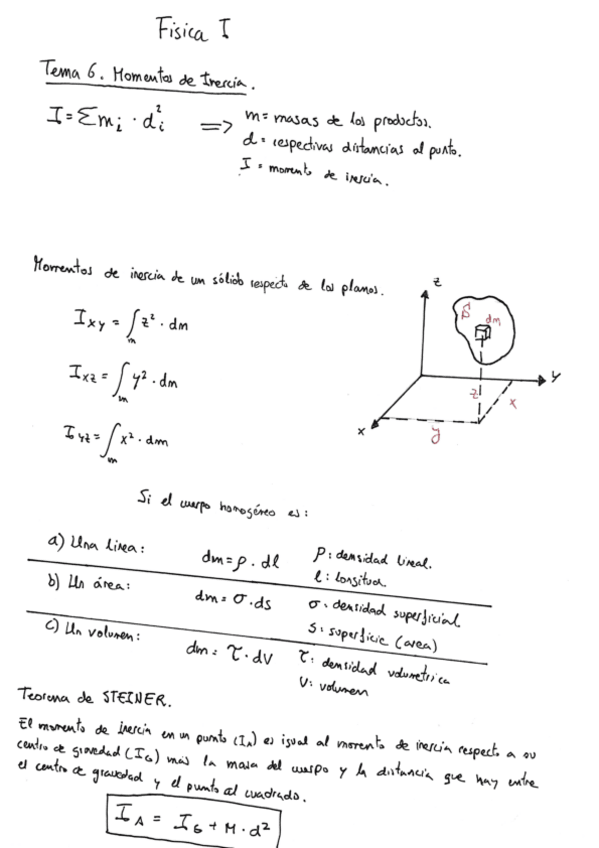 Fisica I
Tema 6. Momentos de Inercia.
I = Σ m_i · d_i² => m = masas de los productos.
d = respectivas distancias al punto.
I = momento de inercia.
Momentos de inercia de un sólido respecto de los planos.
I_xy = ∫_m z² · dm
I_xz = ∫_m y² · dm
I_yz = ∫_m x² · dm
z
dm
y
z
x
x
y
Si el cuerpo homogéneo es:
a) Una linea: dm = ρ · dl ρ: densidad lineal.
l: longitud.
b) Un área: dm = σ · ds σ: densidad superficial.
S: superficie (area)
c) Un volumen: dm = τ · dV τ: densidad volumetrica
V: volumen
Teorema de STEINER.
El momento de inercia en un punto (I_A) es igual al momento de inercia respecto a su
centro de gravedad (I_G) mas la masa del cuerpo y la distancia que hay entre
el centro de gravedad y el punto al cuadrado.
I_A = I_G + M · d²